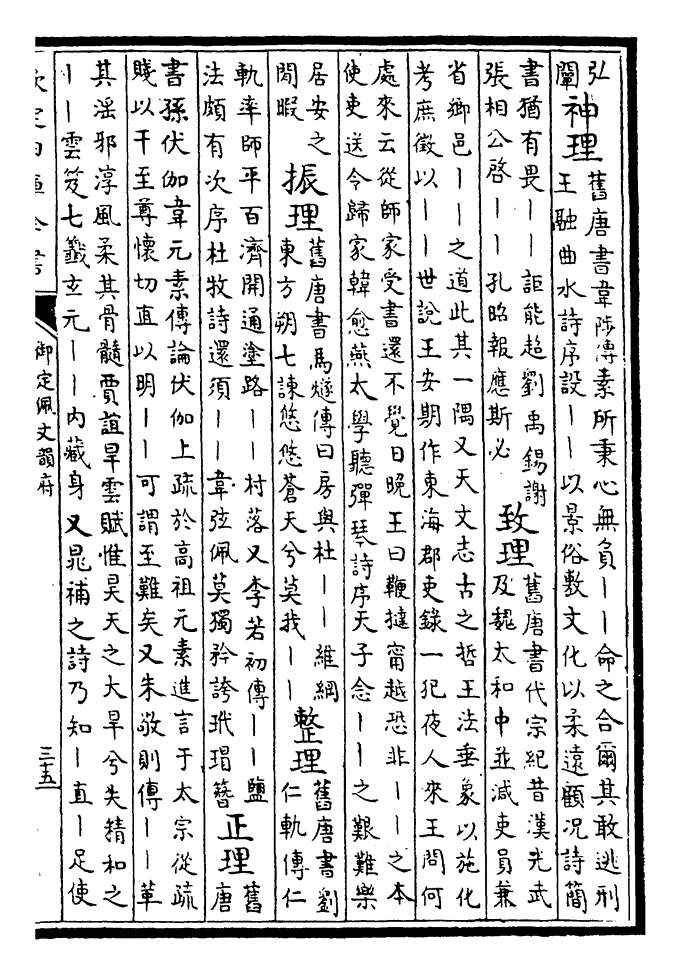 弘
闡
神理
舊唐書韋陟傳素所秉心無負——命之合爾其敢逃刑
王融曲水詩序設——以景俗敷文化以柔遠顧況詩簡
書猶有畏——詎能超劉禹錫謝
張相公啓——孔昭報應斯必
致理
舊唐書代宗紀昔漢光武
及魏太和中並減吏員兼
省鄉邑——之道此其一隅又天文志古之哲王法垂象以施化
考庶徵以——世說王安期作東海郡吏錄一犯夜人來王問何
處來云從師家受書還不覺日晚王曰鞭撻甯越恐非——之本
使吏送令歸家韓愈燕太學聽彈琴詩序天子念——之艱難樂
居安之
閒暇
振理
舊唐書馬燧傳曰房與杜——維綱
東方朔七諫悠悠蒼天兮莫我——
整理
舊唐書劉
仁軌傳仁
軌率師平百濟開通塗路——村落又李若初傳——鹽
法頗有次序杜牧詩還須——韋弦佩莫獨矜誇玳瑁簪
正理
舊
唐
書孫伏伽韋元素傳論伏伽上疏於高祖元素進言于太宗從疏
賤以干至尊懷切直以明——可謂至難矣又朱敬則傳——革
其淫邪淳風柔其骨髓賈誼旱雲賦惟昊天之大旱兮失精和之
——雲笈七籤玄元——内藏身又晁補之詩乃知—直—足使
欽定四庫全書
御定佩文韻府
三十五